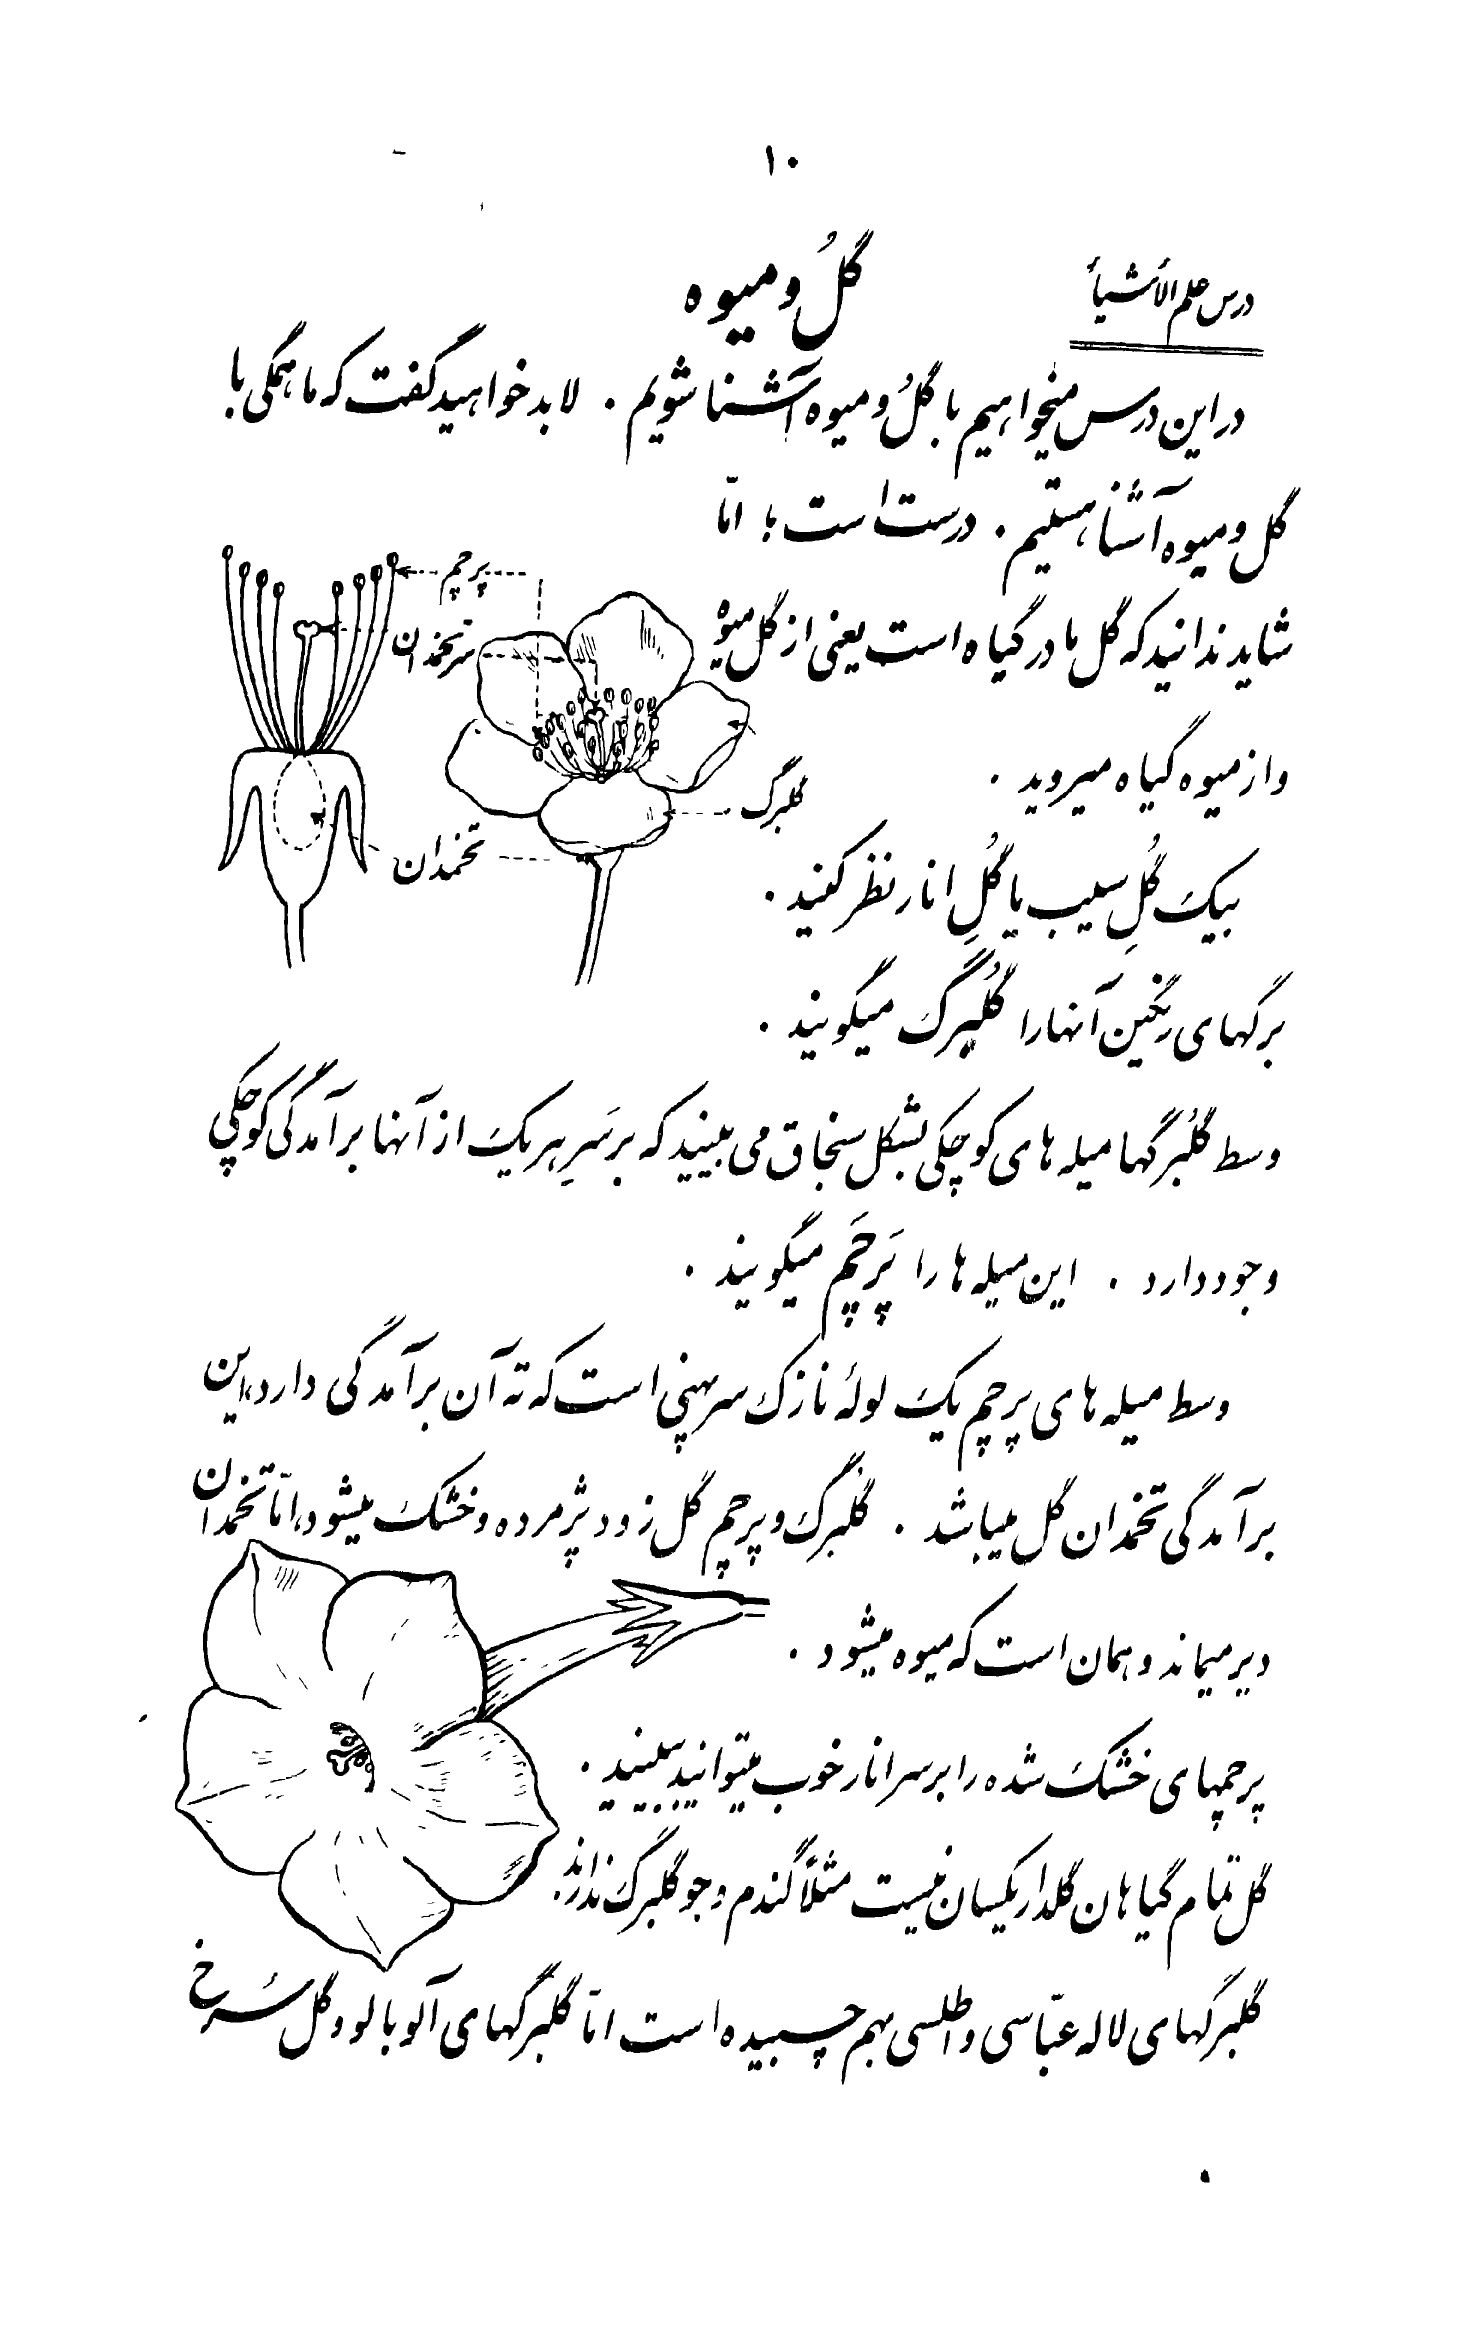 ۱۰
درس علم الأشیأ
گلُ و میوه
در این درس میخواهیم با گلُ و میوه آشنا شویم . لابد خواهید گفت که ما همگی با
گل و میوه آشنا هستیم . درست است ؛ امّا
شاید ندانید که گل مادر گیاه است یعنی از گل میوه
و از میوه گیاه میروید .
بیکَ گُلِ سیب یا گُلِ انار نظر کنید .
برگهای رنگین آنها را گُلبرگ میگویند .
پرچم
سرتخمدان
گلبرگ
تخمدان
وسط گلُبرگها میله های کوچکی بشکل سنجاق می بینید که بر سَرِ هر یکَ از آنها برآمدگی کوچکی
وجود دارد . این میله ها را پَرچَم میگویند .
وسط میله های پرچم یکَ لولهٔ نازک سرپهنی است که ته آن برآمدگی دارد، این
برآمدگی تخمدان گل میباشد . گلُبرگ و پرچم گل زود پژمرده و خشکَ میشود، امّا تخمدان
دیر میماند و همان است که میوه میشود .
پرچمهای خشکَ شده را بر سر انار خوب میتوانید ببینید .
گل تمام گیاهان گلدار یکسان نیست مثلاً گندم و جو گلبرگ ندارند .
گلبرگهای لاله عبّاسی و اطلسی بهم چسبیده است امّا گلبرگهای آلوبالو و گل سُرخ